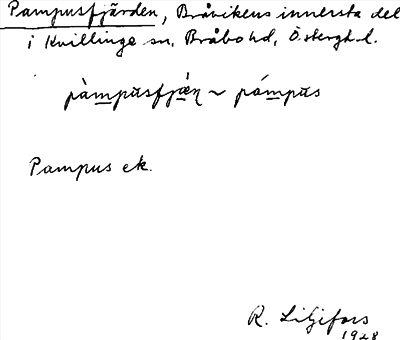 Pampusfjärden, Bråvikens innersta del
i Kvillinge sn, Bråbo hd, Östergötl.
pàmpusfjæ̀ṇ ~ pámpus
Pampus ek.
R. Liljefors
1928